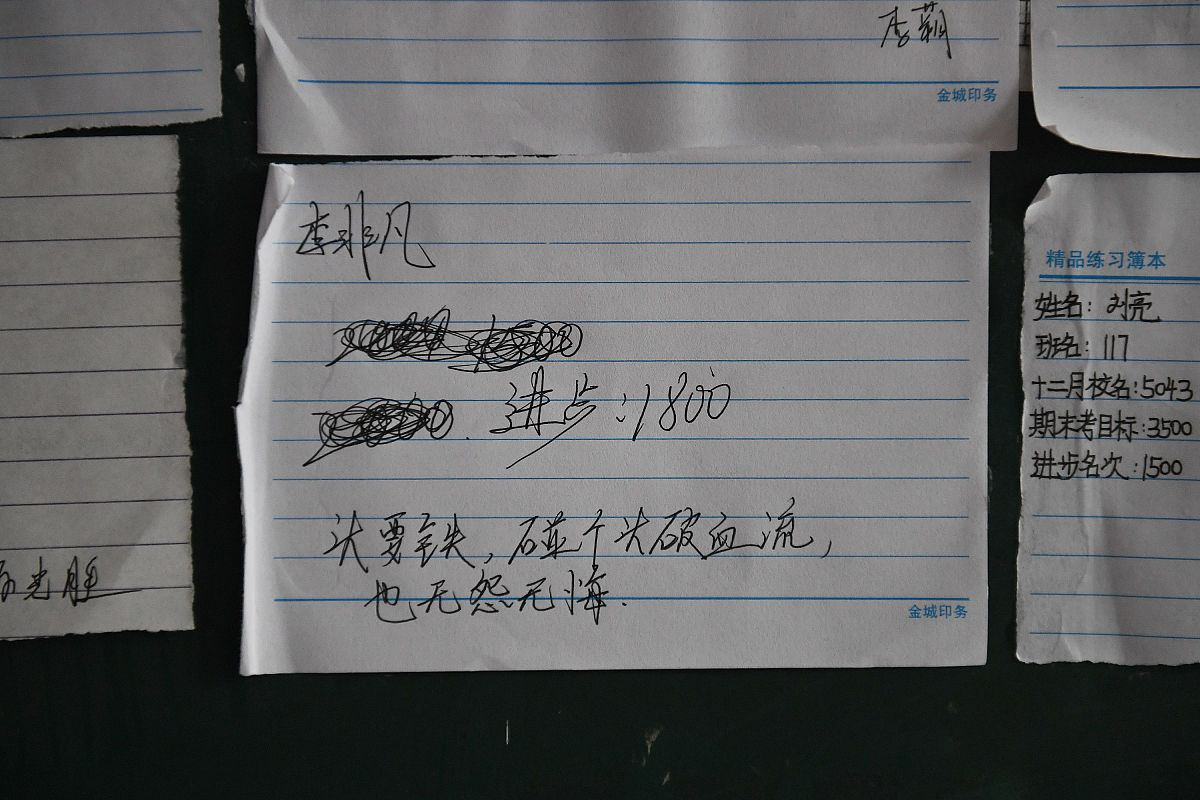 李莉
金城印务
李非凡
进步:1800
头要铁,碰个头破血流,
也无怨无悔.
金城印务
光胜
精品练习簿本
姓名:刘亮
班名:117
十二月校名:5043
期末考目标:3500
进步名次:1500